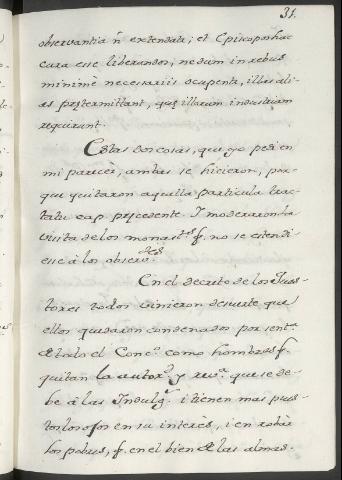 31.
observantia ñ extendatr; et Episcopos hac
cura esse liberandos, ne dum in rebus
minimè necessariis ocupentr, illas ali-
as prętermittant, quę illarum industriam
requirunt.
Estas dos cosas, que yo pedi en
mi parecèr, ambas se hicieron, por-
que quitaron aquella particula tractatu
cap. pręcedente. I moderaron la
visita de los monastos. q. no se estendi-
esse à los observdes.
En el decreto de los Ques-
tores todos vinieron de suerte que
ellos quedaron condenados por senta.
de todo el Conco. como hombres q.
quitan la autord. y reva. que se de-
be à las Indulgs. i tienen mas pues-
tos los ojos en su interès, i en robàr
los pobres, q. en el bien de las almas.